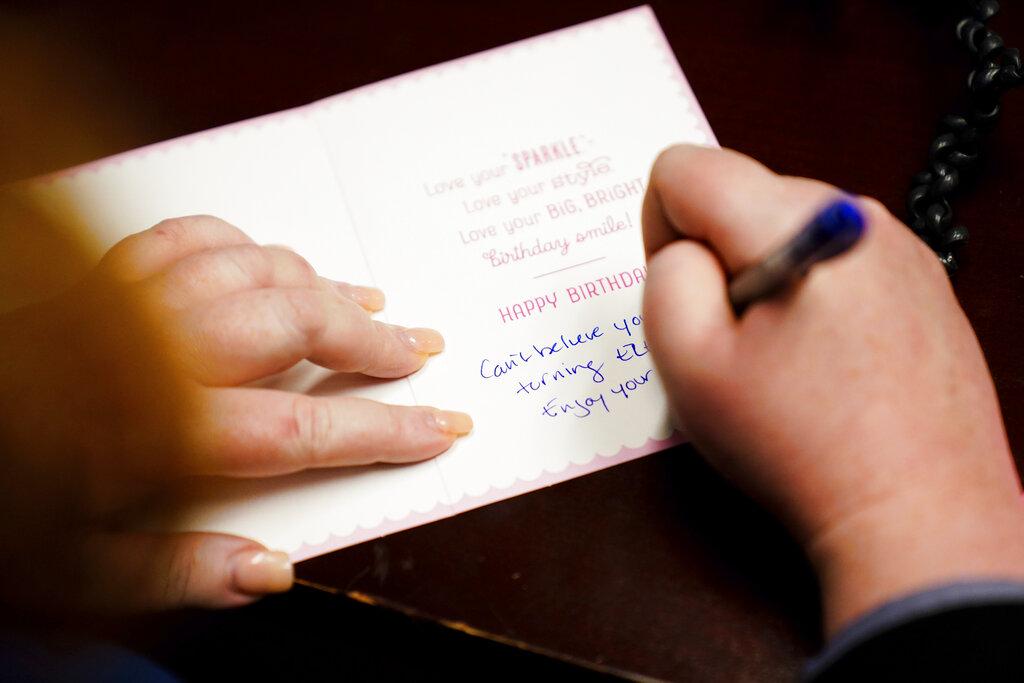 Love your "SPARKLE"-
Love your style.
Love your BIG, BRIGHT
birthday smile!
HAPPY BIRTHDA
Can't believe yo
turning
Enjoy your